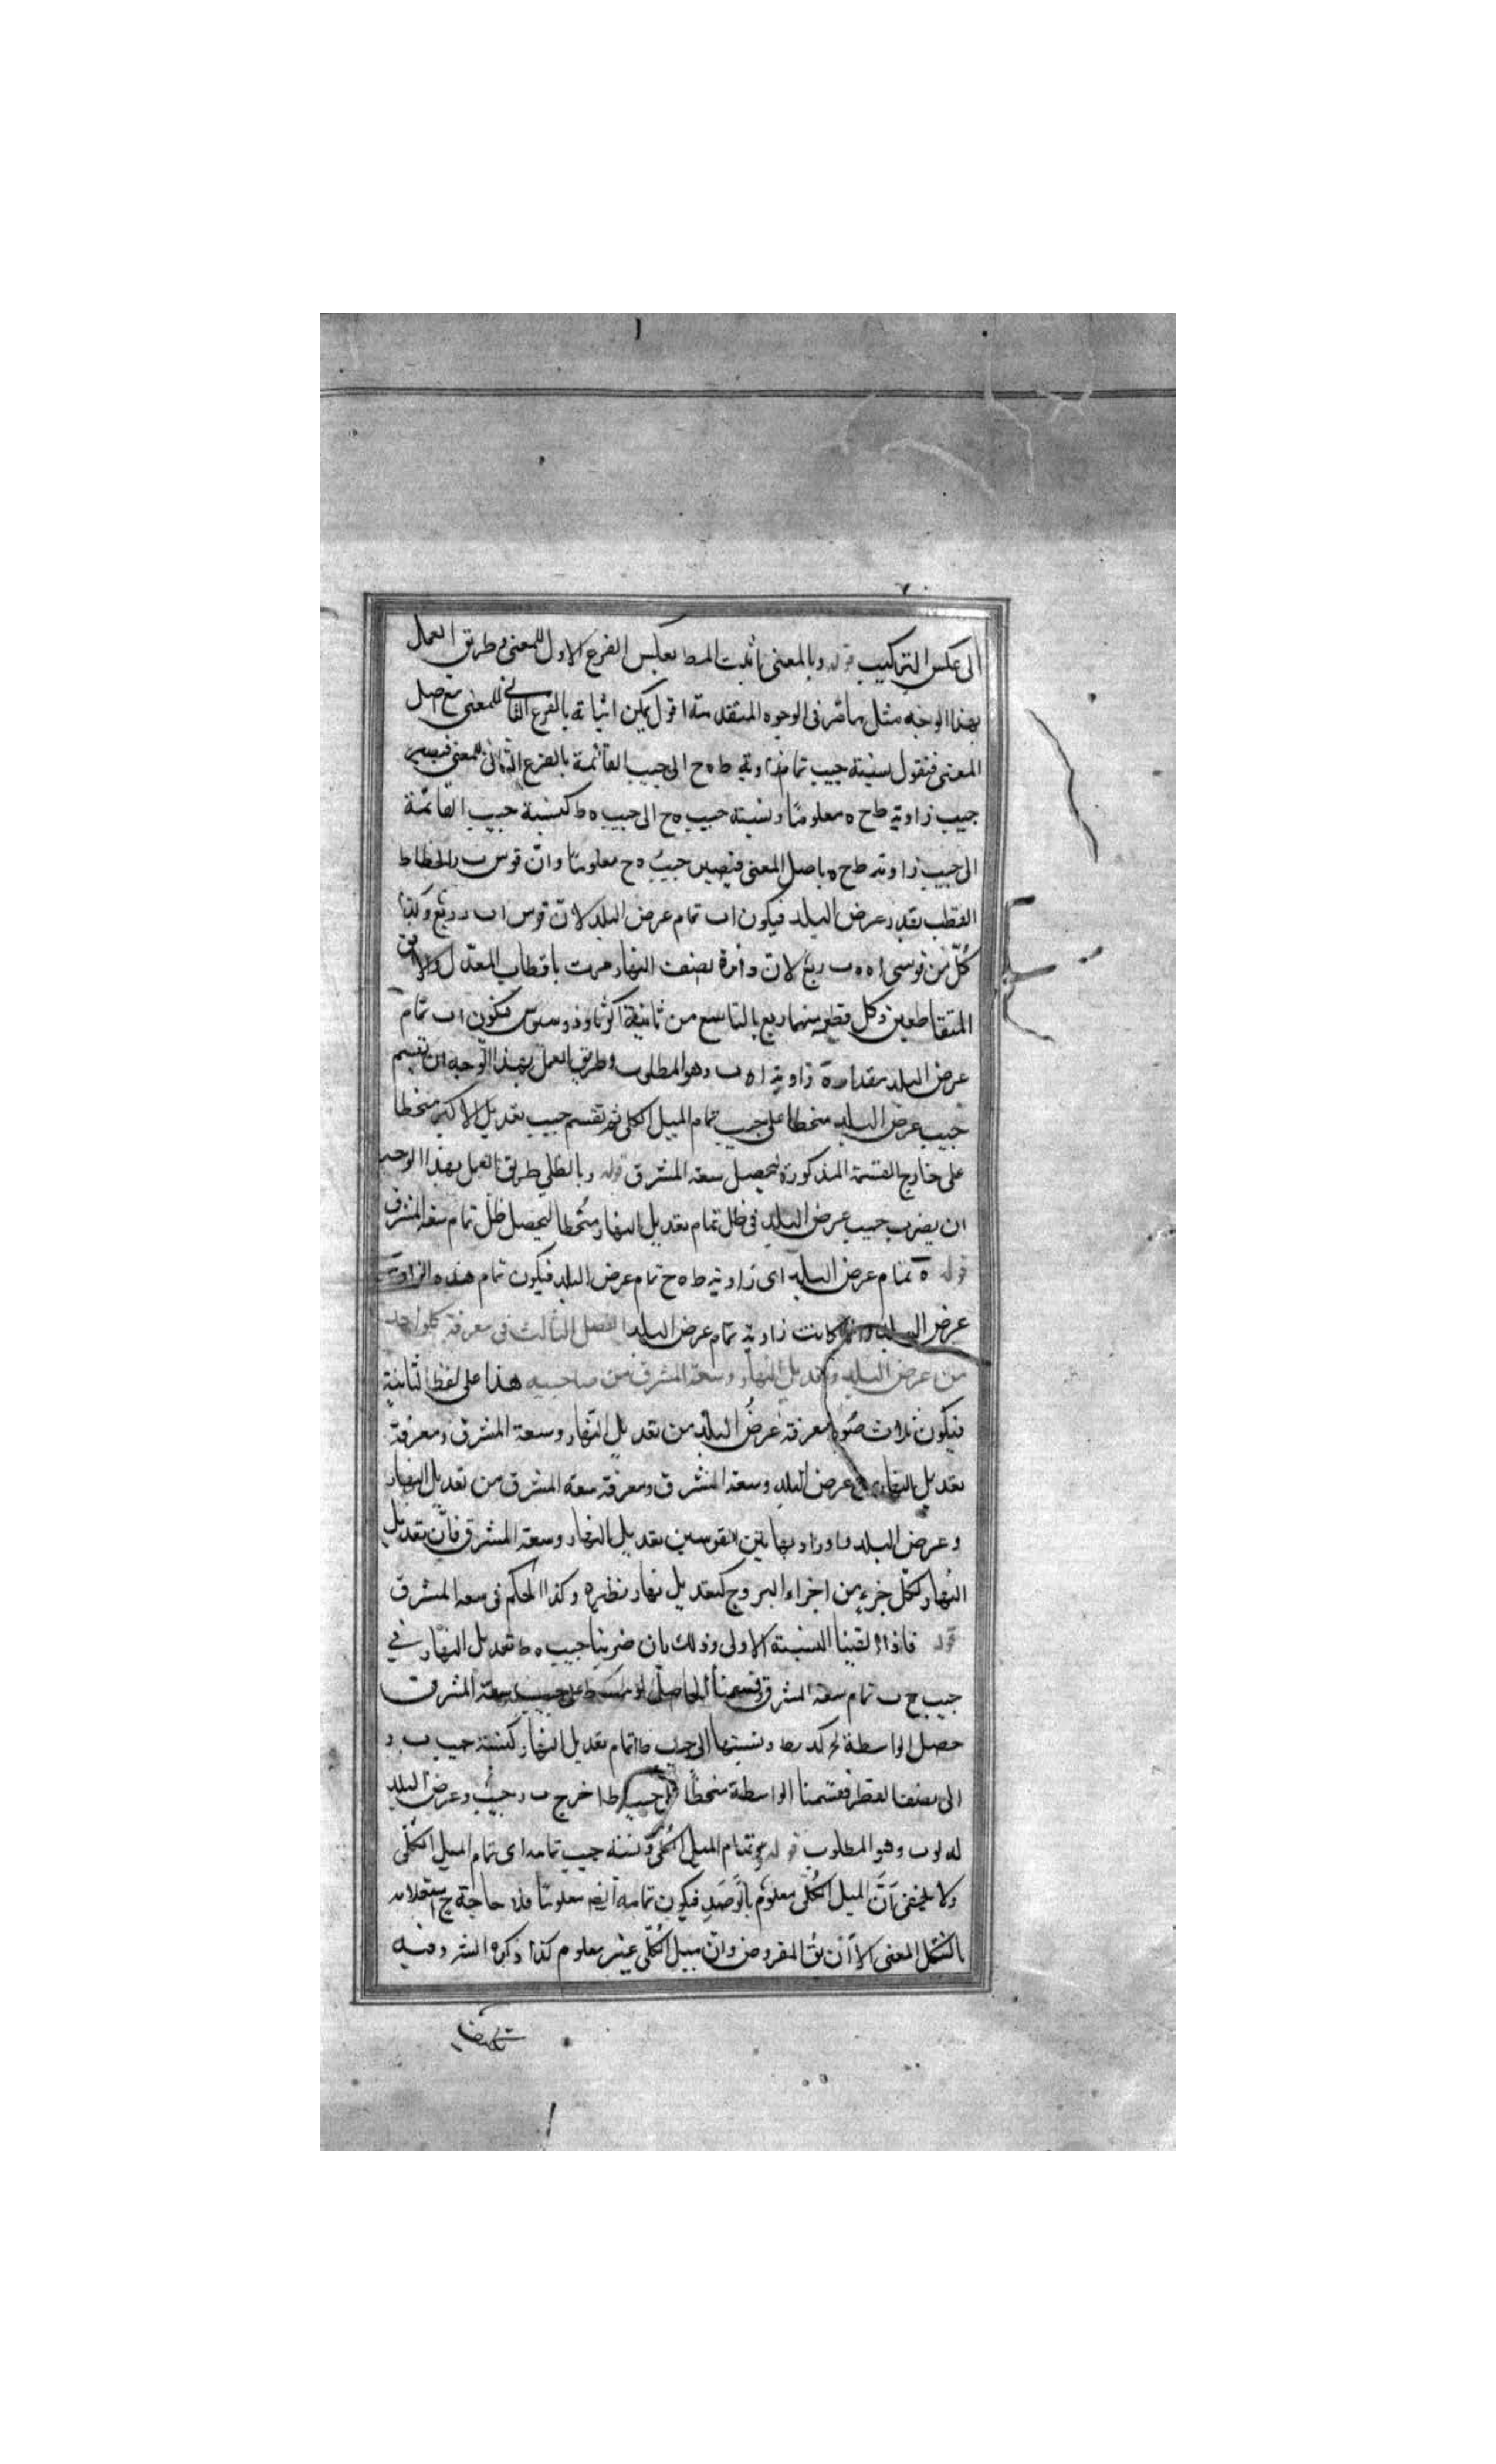 الى عكس التركيب قوله وبالمعنى ما ثبت المط بعكس الفرع الاول للمعنى وطريق العمل
بهذا الوجه مثل ما مر فى الوجوه المتقدمة اقول يمكن اثباته بالفرع الثانى للمعنى مع اصل
المعنى فنقول نسبة جيب تمام زاوية ط ه ح الى جيب القائمة بالفرع الثانى للمعنى فيصير
جيب زاوية ط ح ه معلومًا ونسبة جيب ه ح الى جيب ه ط كنسبة جيب القائمة
الى جيب زاوية ط ح ه باصل المعنى فيصير جيب ه ح معلومًا وانّ قوس ب د انحطاط
القطب بقدر عرض البلد فيكون ا ب تمام عرض البلد لانّ قوس ا ب د ربع وكذا
كلّ من قوسى ا ه ه ب ربع لانّ دائرة نصف النهار مرت باقطاب المعدّل والافق
المتقاطعين وكل قطر منهما ربع بالتاسع من ثانية اكر ثاوذوسيوس فيكون ا ب تمام
عرض البلد مقدار زاوية ا ه ب وهو المطلوب وطريق العمل بهذا الوجه ان تقسم
جيب عرض البلد منحطا على جيب تمام الميل الكلى ثم تقسم جيب تعديل الاكبر منحطا
على خارج القسمة المذكورة ليحصل سعة المشرق قوله وبالظلى طريق العمل بهذا الوجه
ان يضرب جيب عرض البلد فى ظل تمام تعديل النهار منحطا ليحصل ظلّ تمام سعة المشرق
قوله ه تمام عرض البلد اى زاوية ط ه ح تمام عرض البلد فيكون تمام هذه الزاوية
عرض البلد كانت زاوية تمام عرض البلد الفصل الثالث فى معرفة كل واحد
من عرض البلد وتعديل النهار وسعة المشرق من صاحبيه هذا على لفظ التثنية
فيكون ثلاث صور معرفة عرض البلد من تعديل النهار وسعة المشرق ومعرفة
تعديل النهار من عرض البلد وسعة المشرق ومعرفة سعة المشرق من تعديل النهار
وعرض البلد بهاتين القوسين تعديل النهار وسعة المشرق فانّ تعديل
النهار لكلّ جزء من اجزاء البروج كتعديل نهار نظيره وكذا الحكم فى سعة المشرق
قوله فاذا القينا النسبة الاولى وذلك بان ضربنا جيب ه ط تعديل النهار فى
جيب ح ب تمام سعة المشرق وقسمنا الحاصل على جيب سعة المشرق
حصل الواسطة ونسبتها الى جيب ط ا تمام تعديل النهار كنسبة جيب ب د
الى نصف القطر فقسمنا الواسطة منحطًا على جيب ط ا خرج ب د جيب وعرض البلد
وهو المطلوب قوله تمام الميل الكلى ونسبة جيب تمامه اى تمام الميل الكلّى
ولا يخفى انّ الميل الكلى معلوم بالرصد فيكون تمامه ايضا معلومًا فلا حاجة الى استعلامه
بالشكل المعنى الا ان يق المفروض وان ميل الكلّى غير معلوم كذا ذكره وفيه